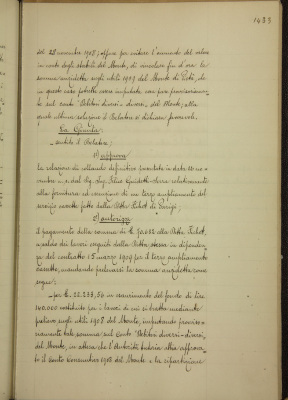 1433
del 28 novembre 1908; offrire per evitare l'aumento del valore
in conto degli stabili del Monte, di vincolare fin d'ora la
somma suddetta sugli utili 1909 del Monte di Pietà, da
in questo caso potrebbe essere imputata con fare provvisoriamen-
te sul conto "Debitori diversi - diversi, del Monte, alla
quale ultima soluzione il Relatore si dichiara favorevole.
La Giunta
sentito il Relatore;
1) approva
la relazione di collaudo definitivo in data 20 no-
vembre u. s. dal Sig. Ing. Felice relativamente
alla fornitura ed erezione di un terzo ampliamento del
servizio fatta dalla Ditta Fichet di Parigi.
2) autorizza
il pagamento della somma di £. alla Ditta Fichet,
a saldo dei lavori eseguiti dalla Ditta stessa in dipenden-
za del contratto 15 marzo 1907 per il terzo ampliamento
cassette, mandando prelevarsi la somma suddetta come
segue:
- per £. 22.233,50 in esaurimento del fondo di lire
140.000 costituito per i lavori di cui si tratta mediante
prelievo sugli utili 1907 del Monte, imputando provviso-
riamente tale somma sul conto "Debitori diversi - diversi,
del Monte, in attesa che l'Autorità tutoria abbia approva-
to il Conto Consuntivo 1908 del Monte e la ripartizione